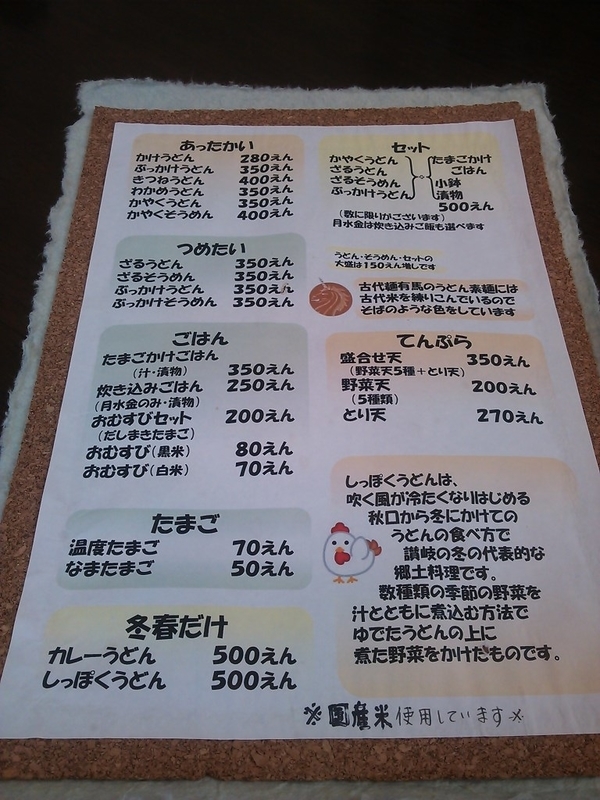 あったかい
かけうどん 280えん
ぶっかけうどん 350えん
きつねうどん 400えん
わかめうどん 350えん
かやくうどん 350えん
かやくそうめん 400えん
つめたい
ざるうどん 350えん
ざるそうめん 350えん
ぶっかけうどん 350えん
ぶっかけそうめん 350えん
ごはん
たまごかけごはん
(汁・漬物) 350えん
炊き込みごはん 250えん
(月水金のみ・漬物)
おむすびセット 200えん
(だしまきたまご)
おむすび(黒米) 80えん
おむすび(白米) 70えん
たまご
温度たまご 70えん
なまたまご 50えん
冬春だけ
カレーうどん 500えん
しっぽくうどん 500えん
セット
かやくうどん
ざるうどん
ざるそうめん
ぶっかけうどん
たまごかけ
ごはん
小鉢
漬物
500えん
(数に限りがございます)
月水金は炊き込みご飯も選べます
うどん・そうめん・セットの
大盛は150えん増しです
古代麺有馬のうどん素麺には
古代米を練りこんでいるので
そばのような色をしています
てんぷら
盛合せ天 350えん
(野菜天5種+とり天)
野菜天 200えん
(5種類)
とり天 270えん
しっぽくうどんは、
吹く風が冷たくなりはじめる
秋口から冬にかけての
うどんの食べ方で
讃岐の冬の代表的な
郷土料理です。
数種類の季節の野菜を
汁とともに煮込む方法で
ゆでたうどんの上に
煮た野菜をかけたものです。
※国産米使用しています※